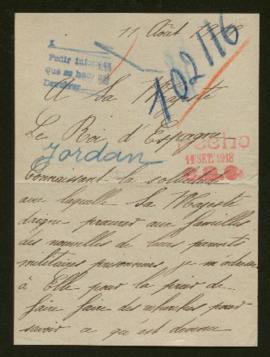 11 Août 1918
102116
Pedir informes
Que se haga
A Sa Majesté
Le Roi d'Espagne
Jordan
Hecho
11 SET. 1918
Connaissant la sollicitude
avec laquelle Sa Majesté
daigne procurer aux familles
des nouvelles de leurs parents
militaires prisonniers je m'adresse
à Elle pour la prier de
faire faire des recherches pour
savoir ce qui est devenu